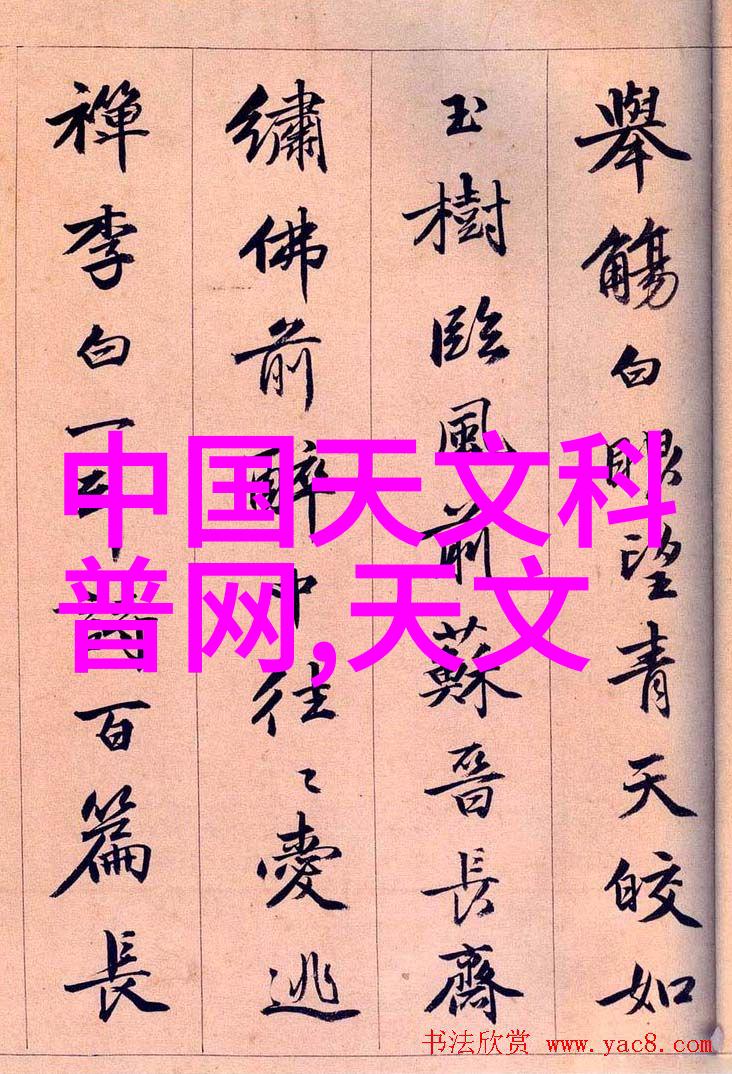 舉觴白眼望青天皎如
玉樹臨風前蘇晉長齋
繡佛前醉中往〻愛逃
禪李白一斗詩百篇長
中国天文科
普网,天文
书法欣赏 www.yac8.com